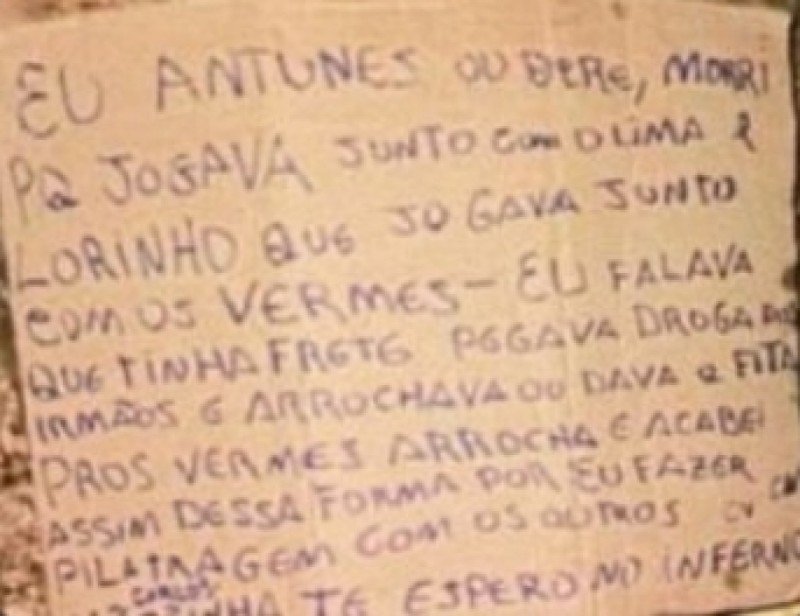 EU ANTUNES OU DERE, MORRI
PQ JOGAVA JUNTO COM O LIMA E
LORINHO QUE JOGAVA JUNTO
COM OS VERMES - EU FALAVA
QUE TINHA FRETE PEGAVA DROGA DOS
IRMÃOS E ARROCHAVA OU DAVA a FITA
PROS VERMES ARROCHA E ACABEI
ASSIM DESSA FORMA POR EU FAZER
PILATRAGEM COM OS OUTROS
CARLOS
TE ESPERO NO INFERNO